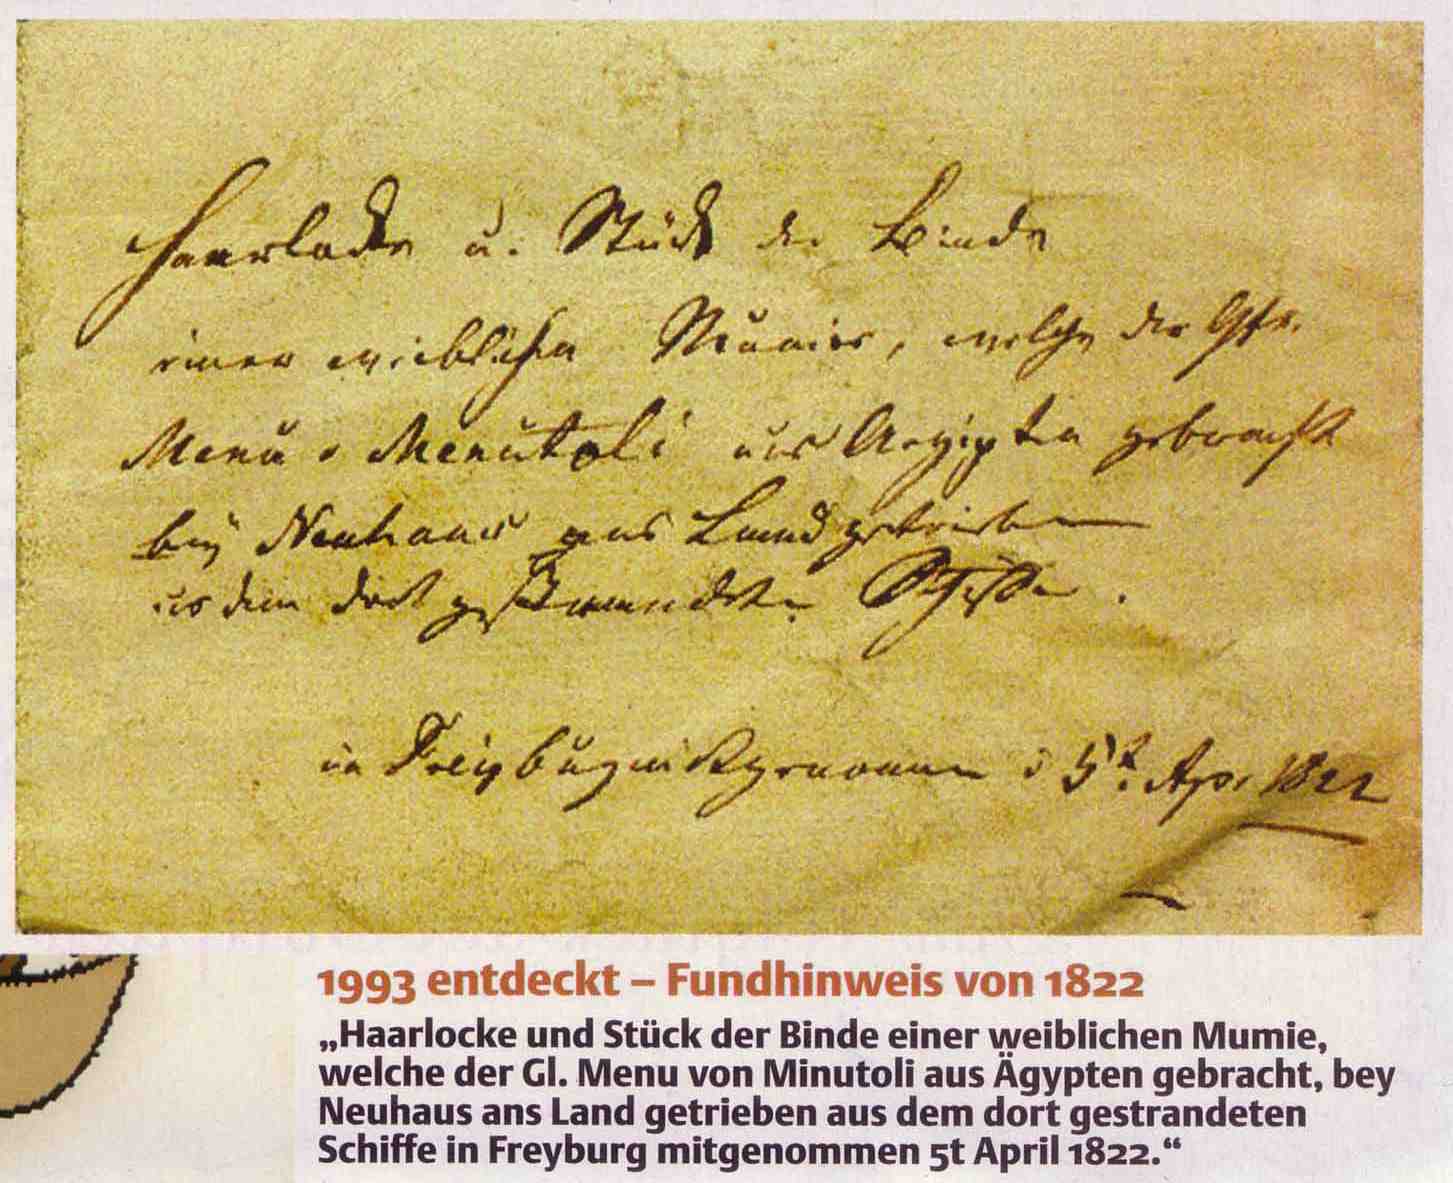 Haarlocke u. Stück der Binde
einer weiblichen Mumie, welche der
Menu v Menutoli aus Aegypten gebracht
bey Neuhaus ans Land getrieben
aus dem dort gestrandeten Schiffe.
in Freyburg mitgenommen d 5t. Apr 1822
1993 entdeckt – Fundhinweis von 1822
„Haarlocke und Stück der Binde einer weiblichen Mumie,
welche der Gl. Menu von Minutoli aus Ägypten gebracht, bey
Neuhaus ans Land getrieben aus dem dort gestrandeten
Schiffe in Freyburg mitgenommen 5t April 1822.“